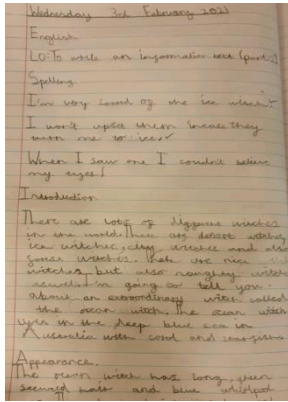 Wednesday 3rd February 2021
English
LO: To write an information text (part
Spelling
I'm very scared of the ice witch!
I won't upset them incase they
turn me to ice.
When I saw one I couldn't believe
my eyes!
Introduction
There are lots of different witches
in the world. There are desert witches,
ice witches, city witches and also
witches. nice
witches but also naughty witches
I'm going to tell you
about an extraordinary witch called
the ocean witch. The ocean witch
lives in the deep blue sea in
Australia with coral and starfish
Appearance.
The ocean witch has long, green
seaweed hair and blue